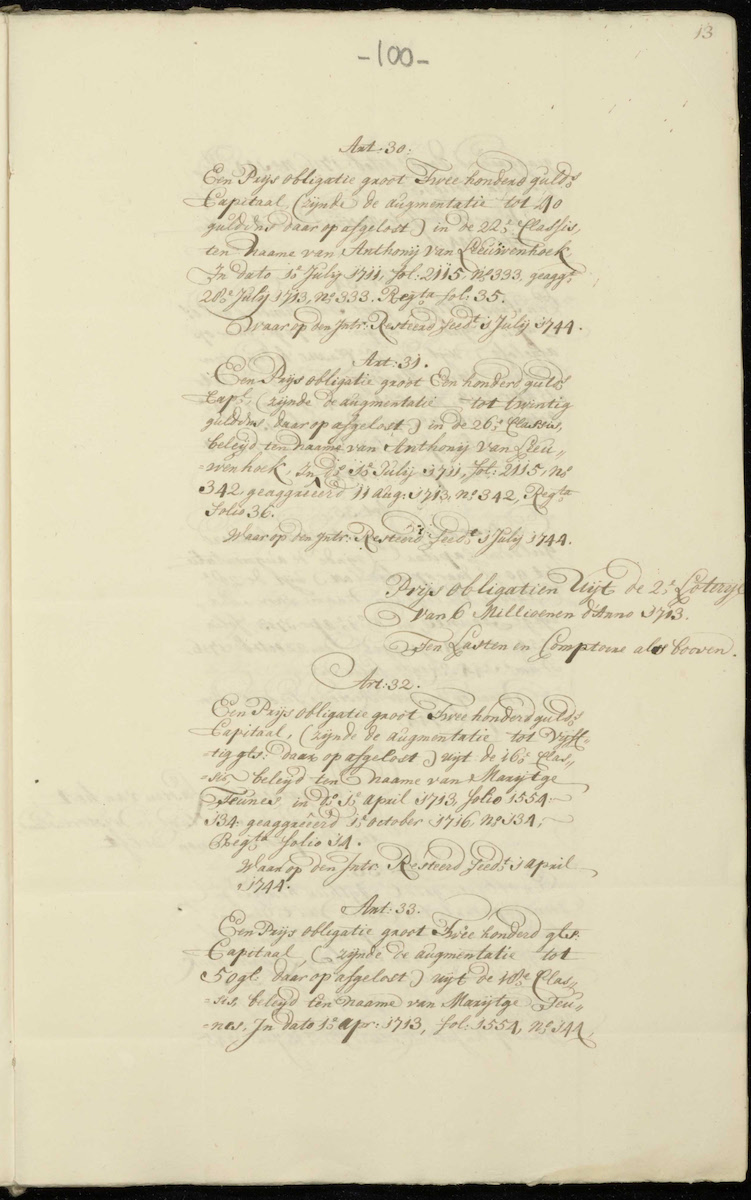 13
-100-
Art: 30:
Een Prijs obligatie groot Twee honderd guld:s
Capitaal, (zijnde de augmentatie tot 40
guldens daar op afgelost) in de 22:e Classis,
ten Naame van Anthonij van Leeuwenhoek
In dato 1:e July 1711, fol: 2115 N:o 333, geagg:t
28:e July 1713, N:o 333. Reg:ta fol: 35.
Waar op den Intr: Resteerd seed:t 1 July 1744.
Art: 31.
Een Prijs obligatie groot Een honderd guld:s
Cap:l (zijnde de augmentatie tot twintig
guldens daar op afgelost) in de 26:e Classis,
beleyd ten naame van Anthonij van Leeu„
„wenhoek, In d:o 1:e Julij 1711, fol: 2115, N:o
342, geaggreerd 11 aug: 1713, N:o 342, Reg:ta
folio 36.
Waar op den Intr: Resteerd seed:t 1 July 1744.
Prijs obligatien Uijt de 2:e Loterije
van 6 Millioenen d'Anno 1713.
Ten Lasten en Comptoire als booven.
Art: 32.
Een Prijs obligatie groot Twee honderd guld:s
Capitaal, (zijnde de augmentatie tot Vijff„
„tig gls: daar op afgelost) uijt de 16:e Clas„
„sis, beleyd ten naame van Marijtge
Teunes, in d:o 1:e April 1713, folio 1554.
134. geaggreerd 1:e October 1716, N:o 134,
Reg:ta folio 14.
Waar op den Intr: Resteerd seed:t 1 april
1744.
Art: 33.
Een Prijs obligatie groot Twee honderd gls:
Capitaal, (zijnde de augmentatie tot
50 gl: daar op afgelost) uijt de 18:e Clas„
„sis, beleyd ten naame van Marijtge Teu„
„nes, In dato 1:e Apr: 1713, fol: 1554, N:o 144,